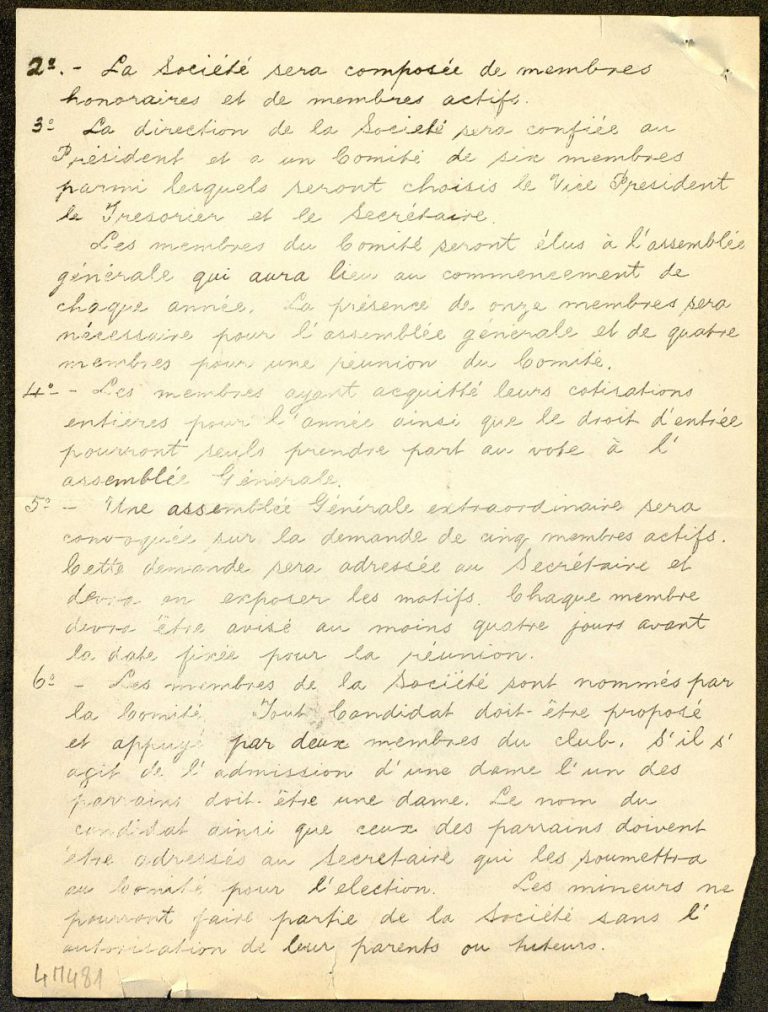 2º. - La Société sera composée de membres
honoraires et de membres actifs.
3º La direction de la Societé sera confiée au
Président et a un Comité de six membres
parmi lesquels seront choisis le Vice President
le Tresorier et le Secrétaire.
Les membres du Comité seront élus à l'assemblée
générale qui aura lieu au commencement de
chaque année. La présence de onze membres sera
nécessaire pour l'assemblée generale et de quatre
membres pour une réunion du Comité.
4º - Les membres ayant acquitté leurs cotisations
entières pour l'année ainsi que le droit d'entrée
pourront seuls prendre part au vote à l'
assemblée Générale.
5º - Une assemblée Générale extraordinaire sera
convoquée sur la demande de cinq membres actifs.
Cette demande sera adressée au Secrétaire et
devra en exposer les motifs. Chaque membre
devra être avisé au moins quatre jours avant
la date fixée pour la réunion.
6º - Les membres de la Société sont nommés par
la Comité Tout Candidat doit-être proposé
et appuyé par deux membres du club. S'il s'
agit de l'admission d'une dame l'un des
parrains doit-être une dame. Le nom du
candidat ainsi que ceux des parrains doivent
être adressés au Secretaire qui les soumettra
au Comité pour l'election. Les mineurs ne
pourront faire partie de la Société sans l'
autorisation de leur parents ou tuteurs.
4M481